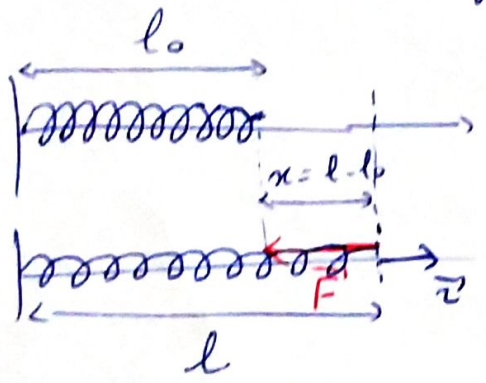 l₀
x = l - l₀
F⃗
i⃗
l